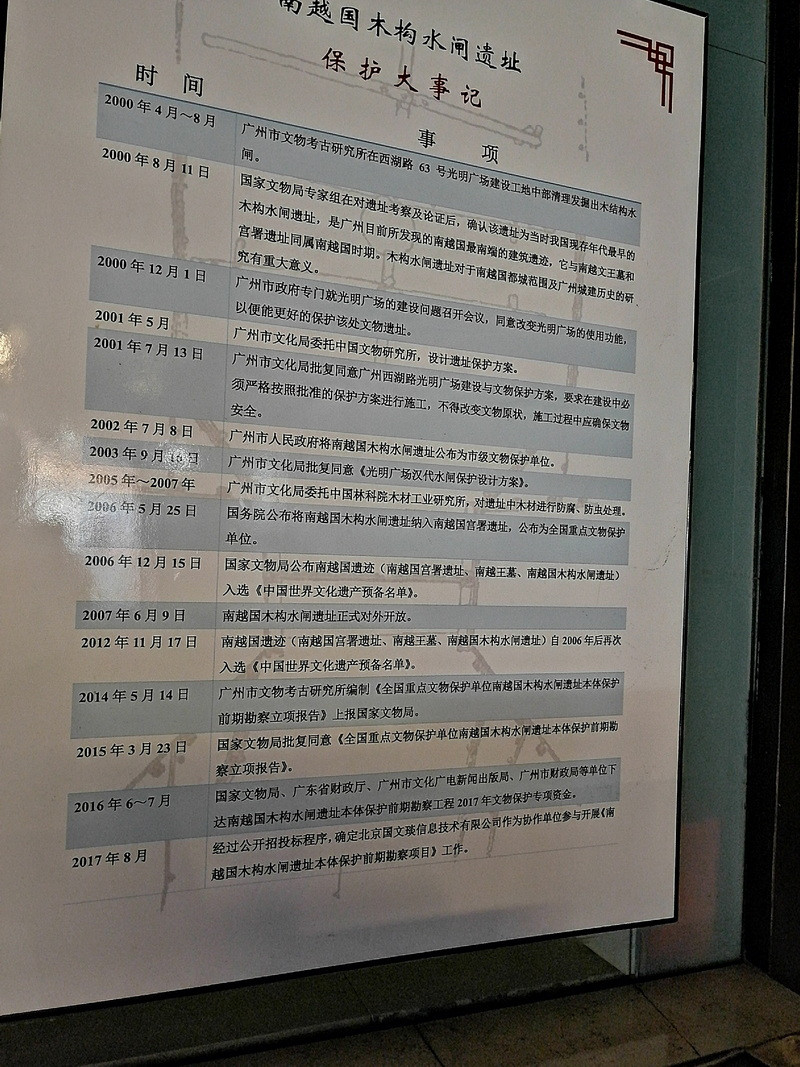 南越国木构水闸遗址
保护大事记
时 间
事 项
2000 年 4 月～8 月
广州市文物考古研究所在西湖路 63 号光明广场建设工地中部清理发掘出木结构水
闸。
2000 年 8 月 11 日
国家文物局专家组在对遗址考察及论证后，确认该遗址为当时我国现存年代最早的
木构水闸遗址，是广州目前所发现的南越国最南端的建筑遗迹，它与南越文王墓和
宫署遗址同属南越国时期。木构水闸遗址对于南越国都城范围及广州城建历史的研
究有重大意义。
2000 年 12 月 1 日
广州市政府专门就光明广场的建设问题召开会议，同意改变光明广场的使用功能，
以便能更好的保护该处文物遗址。
2001 年 5 月
广州市文化局委托中国文物研究所，设计遗址保护方案。
2001 年 7 月 13 日
广州市文化局批复同意广州西湖路光明广场建设与文物保护方案，要求在建设中必
须严格按照批准的保护方案进行施工，不得改变文物原状，施工过程中应确保文物
安全。
2002 年 7 月 8 日
广州市人民政府将南越国木构水闸遗址公布为市级文物保护单位。
2003 年 9 月 日
广州市文化局批复同意《光明广场汉代水闸保护设计方案》。
2005 年～2007 年
广州市文化局委托中国林科院木材工业研究所，对遗址中木材进行防腐、防虫处理。
2006 年 5 月 25 日
国务院公布将南越国木构水闸遗址纳入南越国宫署遗址，公布为全国重点文物保护
单位。
2006 年 12 月 15 日
国家文物局公布南越国遗迹（南越国宫署遗址、南越王墓、南越国木构水闸遗址）
入选《中国世界文化遗产预备名单》。
2007 年 6 月 9 日
南越国木构水闸遗址正式对外开放。
2012 年 11 月 17 日
南越国遗迹（南越国宫署遗址、南越王墓、南越国木构水闸遗址）自 2006 年后再次
入选《中国世界文化遗产预备名单》。
2014 年 5 月 14 日
广州市文物考古研究所编制《全国重点文物保护单位南越国木构水闸遗址本体保护
前期勘察立项报告》上报国家文物局。
2015 年 3 月 23 日
国家文物局批复同意《全国重点文物保护单位南越国木构水闸遗址本体保护前期勘
察立项报告》。
2016 年 6～7 月
国家文物局、广东省财政厅、广州市文化广电新闻出版局、广州市财政局等单位下
达南越国木构水闸遗址本体保护前期勘察工程 2017 年文物保护专项资金。
2017 年 8 月
经过公开招投标程序，确定北京国文琰信息技术有限公司作为协作单位参与开展《南
越国木构水闸遗址本体保护前期勘察项目》工作。